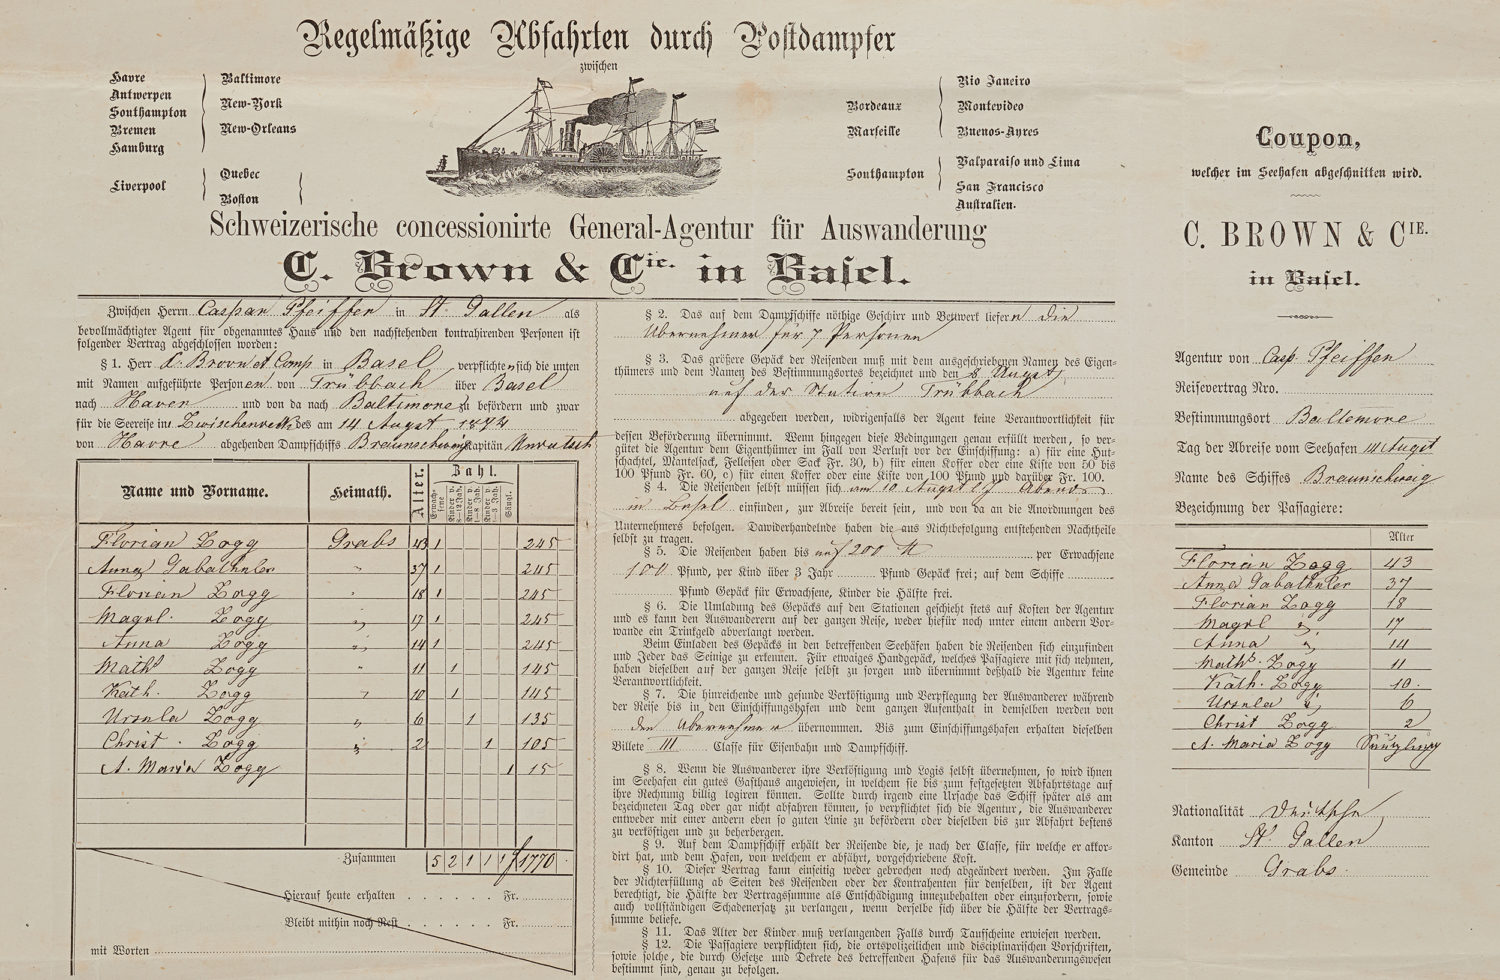 Regelmäßige Abfahrten durch Postdampfer
zwischen
Havre
Antwerpen
Southampton
Bremen
Hamburg
Baltimore
New-York
New-Orleans
Liverpool
Quebec
Boston
Bordeaux
Marseille
Rio Janeiro
Montevideo
Buenos-Ayres
Southampton
Valparaiso und Lima
San Francisco
Australien.
Schweizerische concessionirte General-Agentur für Auswanderung
C. Brown & Cie. in Basel.
Zwischen Herrn Caspar Pfeiffer in St. Gallen als
bevollmächtigter Agent für obgenanntes Haus und den nachstehenden kontrahirenden Personen ist
folgender Vertrag abgeschlossen worden:
§ 1. Herr C. Brown et Comp in Basel verpflichten sich die unten
mit Namen aufgeführte Personen von Trübbach über Basel
nach Haver und von da nach Baltimore zu befördern und zwar
für die Seereise im Zwischendeck des am 14. Augst 1874
von Havre abgehenden Dampfschiffs Braunschweig Kapitän
Name und Vorname. Heimath. Alter. Zahl.
Erwachsene Kinder v. 8–12 Jah. Kinder v. 1–8 Jah. Kinder v. 1–3 Jah. Säugl.
Florian Zogg Grabs 43 1 245
Anna Gabathuler " 37 1 245
Florian Zogg " 18 1 245
Magd. Zogg " 17 1 245
Anna Zogg " 14 1 245
Maths Zogg " 11 1 145
Kath. Zogg " 10 1 145
Ursula Zogg " 6 1 135
Christ. Zogg " 2 1 105
A. Maria Zogg 1 15
Zusammen 5 2 1 1 1 f 1770
Hierauf heute erhalten . . . . . . Fr.
Bleibt mithin noch Rest . . . . . . Fr.
mit Worten
§ 2. Das auf dem Dampfschiffe nöthige Geschirr und Bettwerk liefern die
Übernehmer für 7 Personen
§ 3. Das größere Gepäck der Reisenden muß mit dem ausgeschriebenen Namen des Eigen-
thümers und dem Namen des Bestimmungsortes bezeichnet und den 8 Augst
auf der Station Trübbach
abgegeben werden, widrigenfalls der Agent keine Verantwortlichkeit für
dessen Beförderung übernimmt. Wenn hingegen diese Bedingungen genau erfüllt werden, so ver-
gütet die Agentur dem Eigenthümer im Fall von Verlust vor der Einschiffung: a) für eine Hut-
schachtel, Mantelsack, Felleisen oder Sack Fr. 30, b) für einen Koffer oder eine Kiste von 50 bis
100 Pfund Fr. 60, c) für einen Koffer oder eine Kiste von 100 Pfund und darüber Fr. 100.
§ 4. Die Reisenden selbst müssen sich am 10 Augst Abends
in Basel einfinden, zur Abreise bereit sein, und von da an die Anordnungen des
Unternehmers befolgen. Dawiderhandelnde haben die aus Nichtbefolgung entstehenden Nachtheile
selbst zu tragen.
§ 5. Die Reisenden haben bis auf 200 ℔ per Erwachsene
100 Pfund, per Kind über 3 Jahr Pfund Gepäck frei; auf dem Schiffe
Pfund Gepäck für Erwachsene, Kinder die Hälfte frei.
§ 6. Die Umladung des Gepäcks auf den Stationen geschieht stets auf Kosten der Agentur
und es kann den Auswanderern auf der ganzen Reise, weder hiefür noch unter einem andern Vor-
wande ein Trinkgeld abverlangt werden.
Beim Einladen des Gepäcks in den betreffenden Seehäfen haben die Reisenden sich einzufinden
und Jeder das Seinige zu erkennen. Für etwaiges Handgepäck, welches Passagiere mit sich nehmen,
haben dieselben auf der ganzen Reise selbst zu sorgen und übernimmt deßhalb die Agentur keine
Verantwortlichkeit.
§ 7. Die hinreichende und gesunde Verköstigung und Verpflegung der Auswanderer während
der Reise bis in den Einschiffungshafen und dem ganzen Aufenthalt in demselben werden von
den Übernehmer übernommen. Bis zum Einschiffungshafen erhalten dieselben
Billete III Classe für Eisenbahn und Dampfschiff.
§ 8. Wenn die Auswanderer ihre Verköstigung und Logis selbst übernehmen, so wird ihnen
im Seehafen ein gutes Gasthaus angewiesen, in welchem sie bis zum festgesetzten Abfahrtstage auf
ihre Rechnung billig logiren können. Sollte durch irgend eine Ursache das Schiff später als am
bezeichneten Tag oder gar nicht abfahren können, so verpflichtet sich die Agentur, die Auswanderer
entweder mit einer andern eben so guten Linie zu befördern oder dieselben bis zur Abfahrt bestens
zu verköstigen und zu beherbergen.
§ 9. Auf dem Dampfschiff erhält der Reisende die, je nach der Classe, für welche er akkor-
dirt hat, und dem Hafen, von welchem er abfährt, vorgeschriebene Kost.
§ 10. Dieser Vertrag kann einseitig weder gebrochen noch abgeändert werden. Im Falle
der Nichterfüllung ab Seiten des Reisenden oder der Kontrahenten für denselben, ist der Agent
berechtigt, die Hälfte der Vertragssumme als Entschädigung innezubehalten oder einzufordern, sowie
auch vollständigen Schadenersatz zu verlangen, wenn derselbe sich über die Hälfte der Vertrags-
summe beliefe.
§ 11. Das Alter der Kinder muß verlangenden Falls durch Taufscheine erwiesen werden.
§ 12. Die Passagiere verpflichten sich, die ortspolizeilichen und disciplinarischen Vorschriften,
sowie solche, die durch Gesetze und Dekrete des betreffenden Hafens für das Auswanderungswesen
bestimmt sind, genau zu befolgen.
Coupon,
welcher im Seehafen abgeschnitten wird.
C. BROWN & CIE.
in Basel.
Agentur von Casp. Pfeiffer
Reisevertrag Nro.
Bestimmungsort Baltemore
Tag der Abreise vom Seehafen 14 Augst
Name des Schiffes Braunschweig
Bezeichnung der Passagiere:
Alter
Florian Zogg 43
Anna Gabathuler 37
Florian Zogg 18
Magd " 17
Anna " 14
Maths. Zogg 11
Käth. Zogg 10.
Ursula " 6
Christ Zogg 2
A. Maria Zogg Säugling
Nationalität Deutsche
Kanton St. Gallen
Gemeinde Grabs.